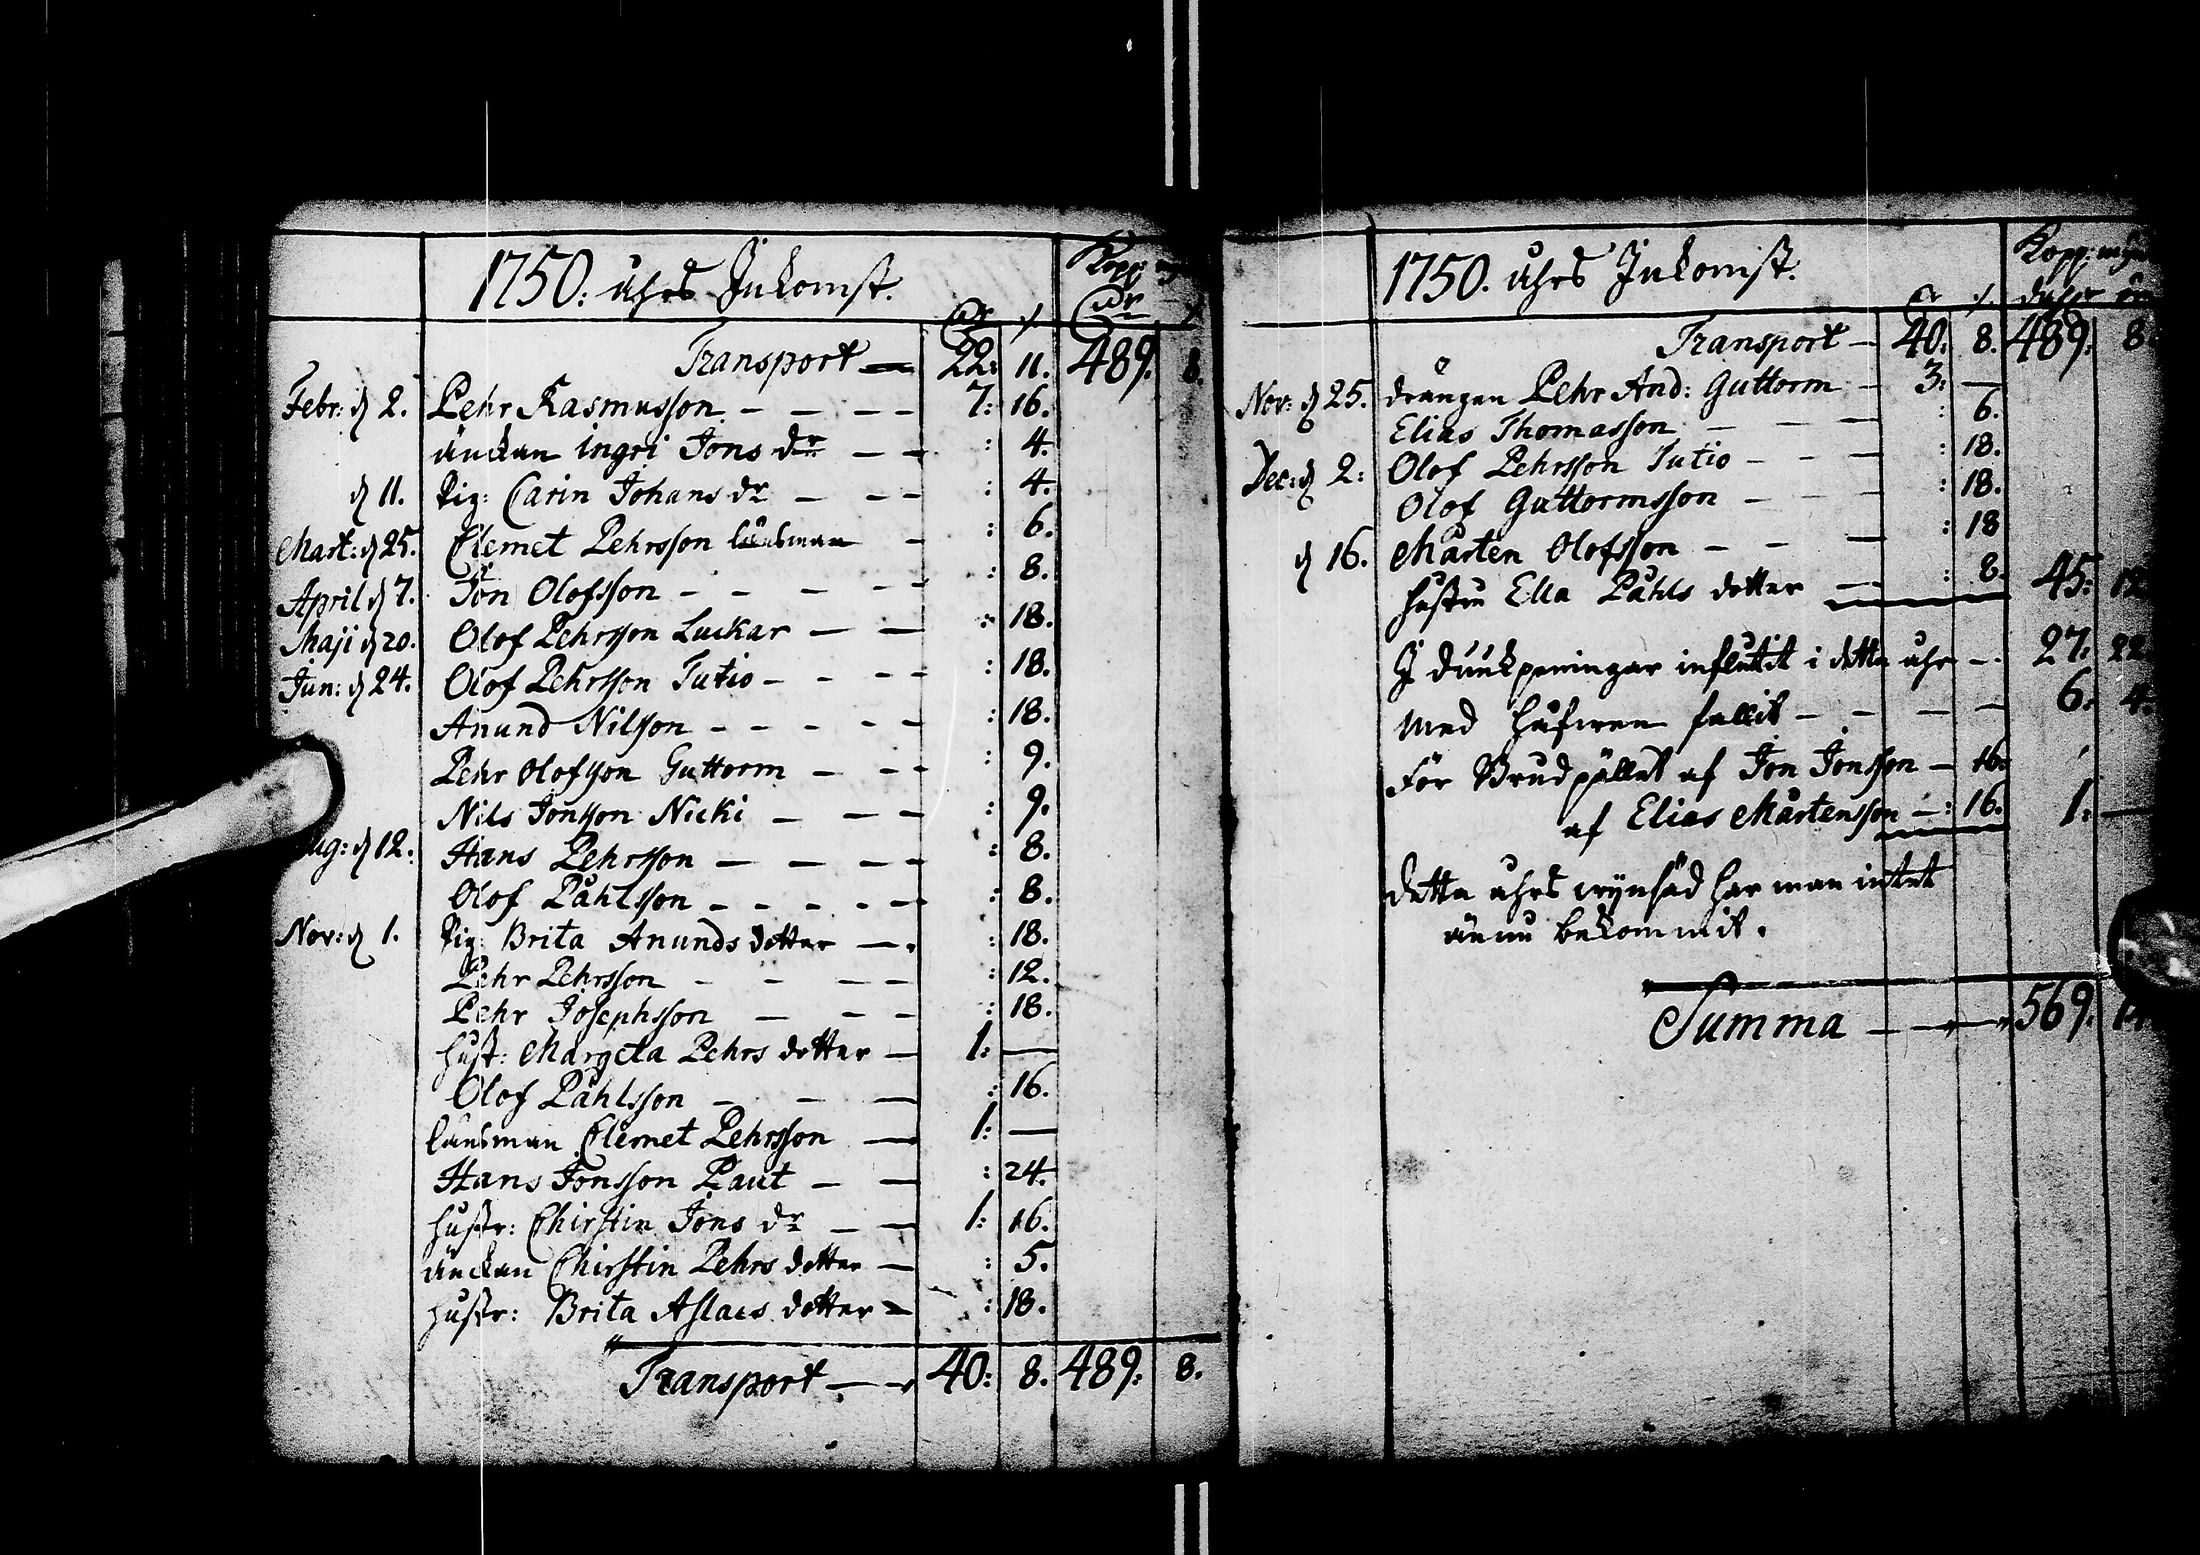 1750: åhrs Inkomst.
Kopp:
Dr ./. Dr ./.
Transport — 22: 11. 489. 8.
Febr: d 2. Pehr Rasmusson — — — — 7: 16.
änckan Ingri Jons dr — — : 4.
d 11. Pig: Carin Johans dr — — — : 4.
Mart: d 25. Clemet Pehrsson länsman — : 6.
April d 7. Jon Olofsson — — — — : 8.
Maji d 20. Olof Pehrsson Luckar — — : 18.
Jun: d 24. Olof Pehrsson Tutio — — — — : 18.
Anund Nilsson — — — — — : 18.
Pehr Olofsson Guttorm — — — : 9.
Nils Jonsson Nicki — — — : 9.
Aug: d 12. Hans Pehrsson — — — — : 8.
Olof Påhlsson — — — — — : 8.
Nov: d 1. Pig: Brita Anunds dotter — : 18.
Pehr Pehrsson — — — — : 12.
Pehr Josephsson — — — : 18.
Hust: Margeta Pehrs dotter — 1: —
Olof Påhlsson — — — : 16.
länsman Clemet Pehrsson — 1: —
Hans Jonsson Paut — — : 24.
hustr: Chirstin Jons dr — — 1: 16.
änckan Chirstin Pehrs dotter — : 5.
hustr: Brita Aslacs dotter — : 18.
Transport — — 40: 8. 489. 8.
1750. åhrs Inkomst.
Kopp:
Dr ./.
Transport — 40: 8. 489. 8
Nov: d 25. drängen Pehr And: Guttorm — 3: —
Elias Thomasson — — — : 6.
Dec: d 2: Olof Pehrsson Tutio — — — : 18.
Olof Guttormsson — — — : 18.
d 16. Mårten Olofsson — — — : 18
hustru Ella Påhls dotter — : 8. 45: 12
I dunkpeningar influtit i detta åhr — 27: 22
Med håfwen fallit — — — — 6: 4.
För Brudpället af Jon Jonsson — 16.
af Elias Mårtensson — : 16. 1. —
detta åhrs
har man intet
ännu bekommit.
Summa — — — 569.